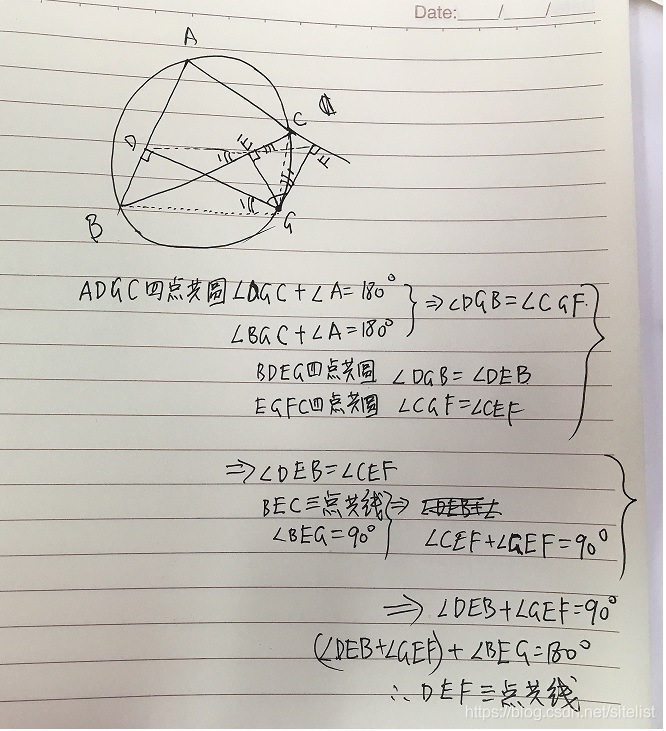 Date: / /
A
C
D
E
F
B
G
ADGC四点共圆 ∠DGC+∠A=180° ⇒∠DGB=∠CGF.
∠BGC+∠A=180°
BDEG四点共圆 ∠DGB=∠DEB
EGFC四点共圆 ∠CGF=∠CEF
⇒∠DEB=∠CEF
BEC三点共线 ⇒
∠BEG=90° ∠CEF+∠GEF=90°
⇒ ∠DEB+∠GEF=90°
(∠DEB+∠GEF)+∠BEG=180°
∴DEF三点共线
https://blog.csdn.net/sitelist